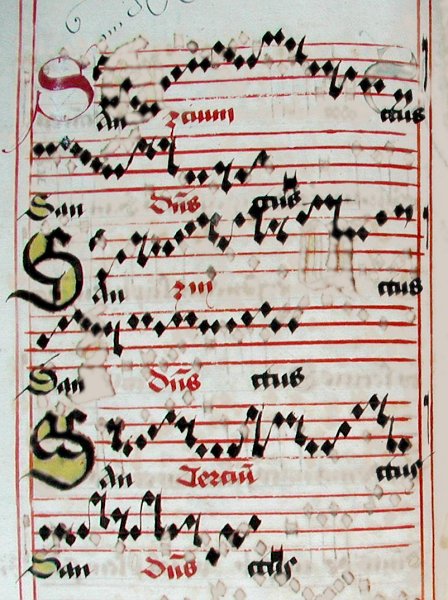 San ctus
San Dñs ctus
San ctus
San Dñs ctus
San Terciũ ctus
San Dñs ctus